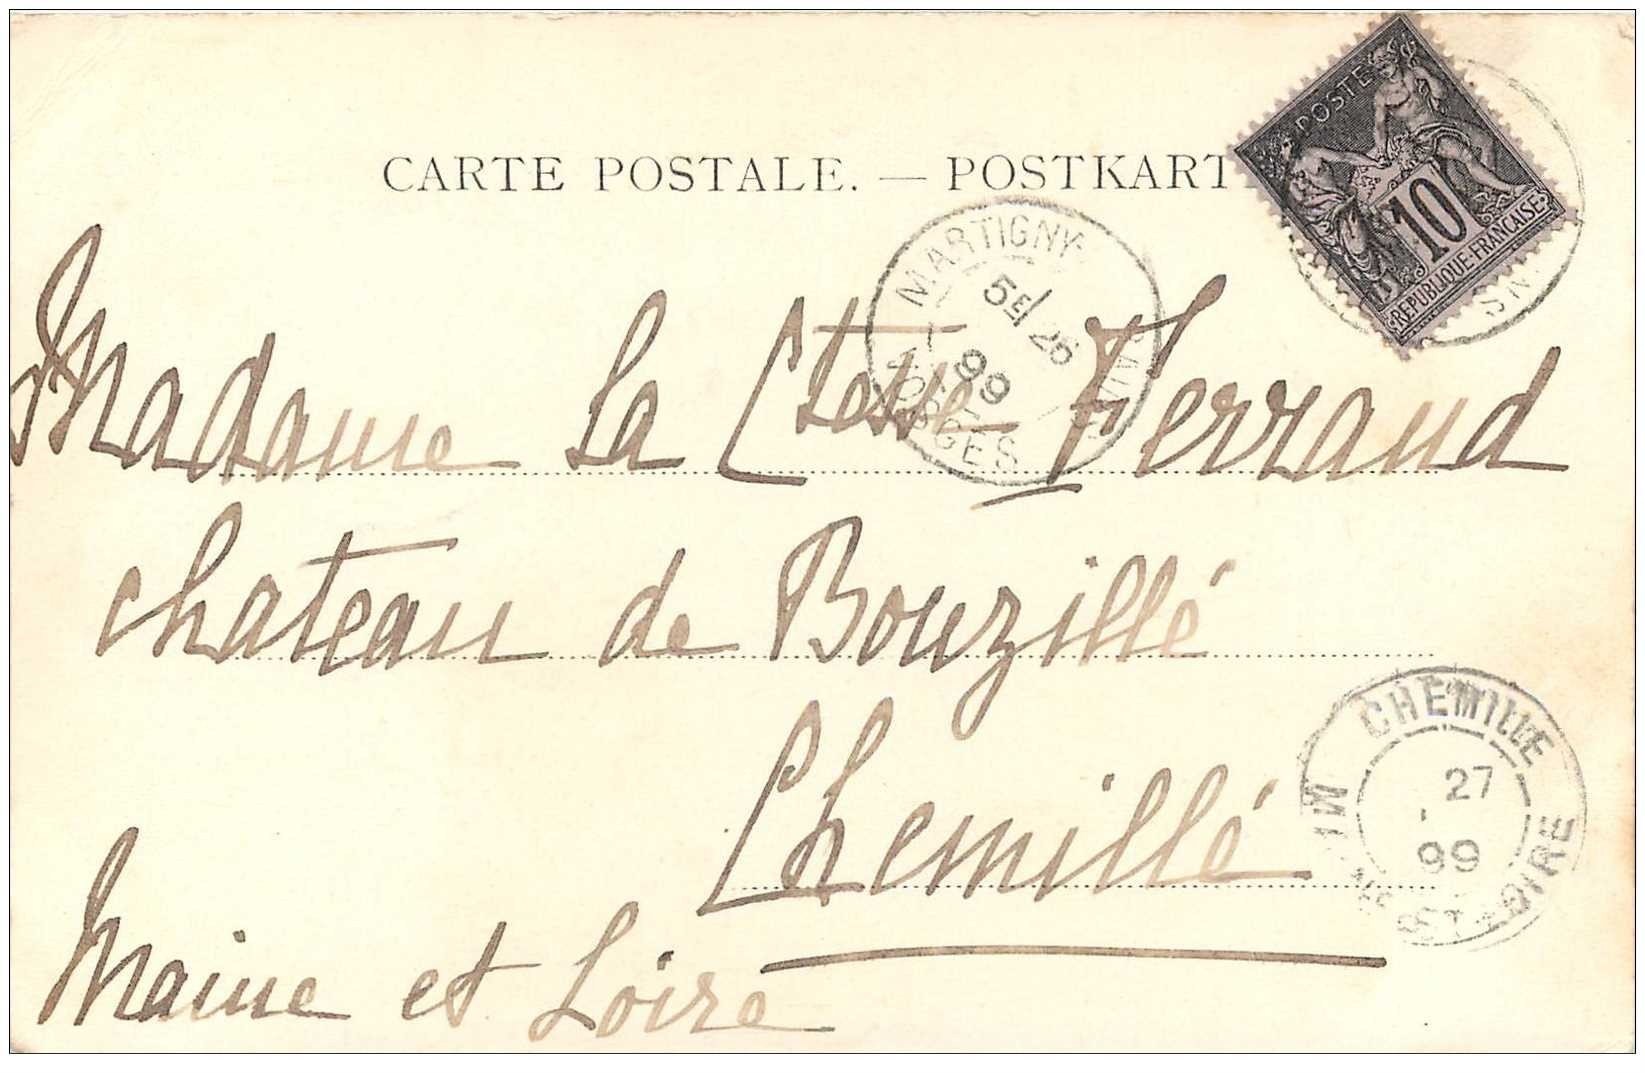 CARTE POSTALE. — POSTKART
POSTE
10
REPUBLIQUE FRANÇAISE
MARTIGNY
5E/ 26
99
VOSGES
Madame la Ctesse Ferraud
chateau de Bouzillé
Chemillé
Maine et Loire
CHEMILLE
27
99
ET LOIRE